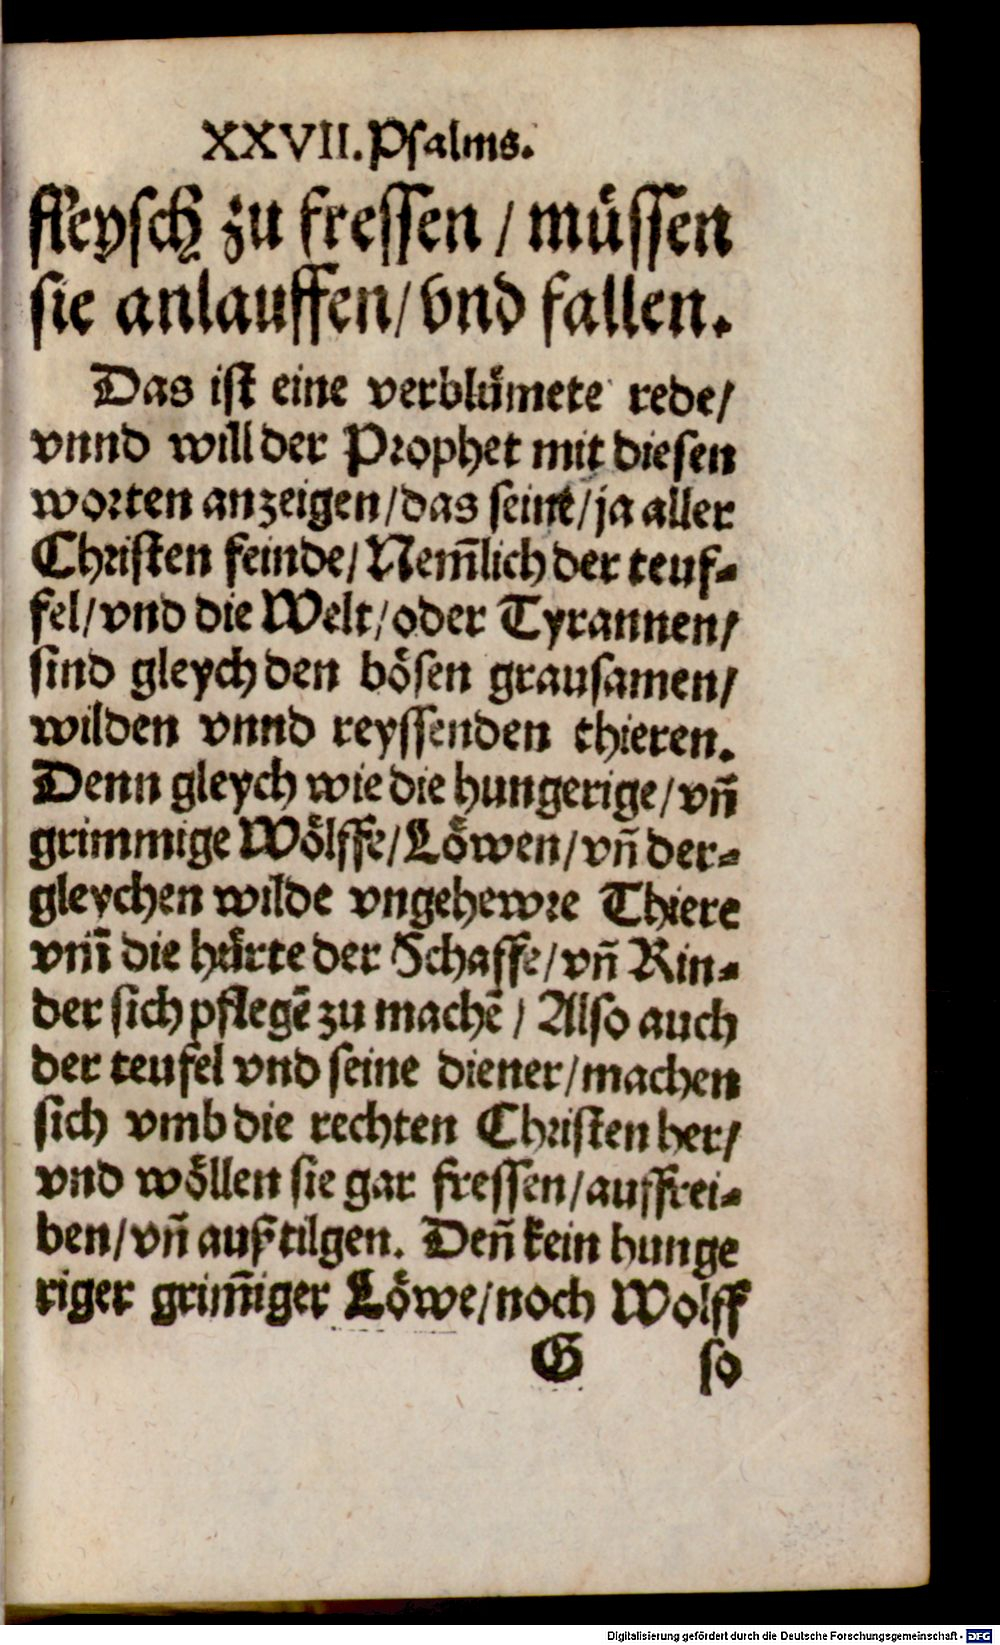 XXVII. Psalms.
fleysch zu fressen / müssen
sie anlauffen / vnd fallen.
Das ist eine verblümete rede /
vnnd will der Prophet mit diesen
worten anzeigen / das seine / ja aller
Christen feinde / Nem̃lich der teuf-
fel / vnd die Welt / oder Tyrannen /
sind gleych den bösen grausamen /
wilden vnnd reyssenden thieren.
Denn gleych wie die hungerige / vñ
grimmige Wölffe / Löwen / vñ der-
gleychen wilde vngehewre Thiere
vm̃ die hürte der Schaffe / vñ Rin-
der sich pflegẽ zu machẽ / Also auch
der teufel vnd seine diener / machen
sich vmb die rechten Christen her /
vnd wöllen sie gar fressen / auffrei-
ben / vñ außtilgen. Deñ kein hunge
riger grim̃iger Löwe / noch Wolff
G so
Digitalisierung gefördert durch die Deutsche Forschungsgemeinschaft - DFG